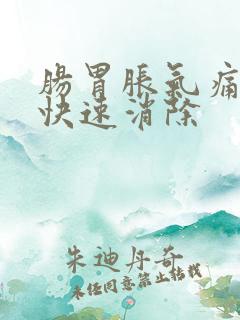 腸胃脹氣痛
快速消除
朱迪丹奇
未經同意禁止轉載